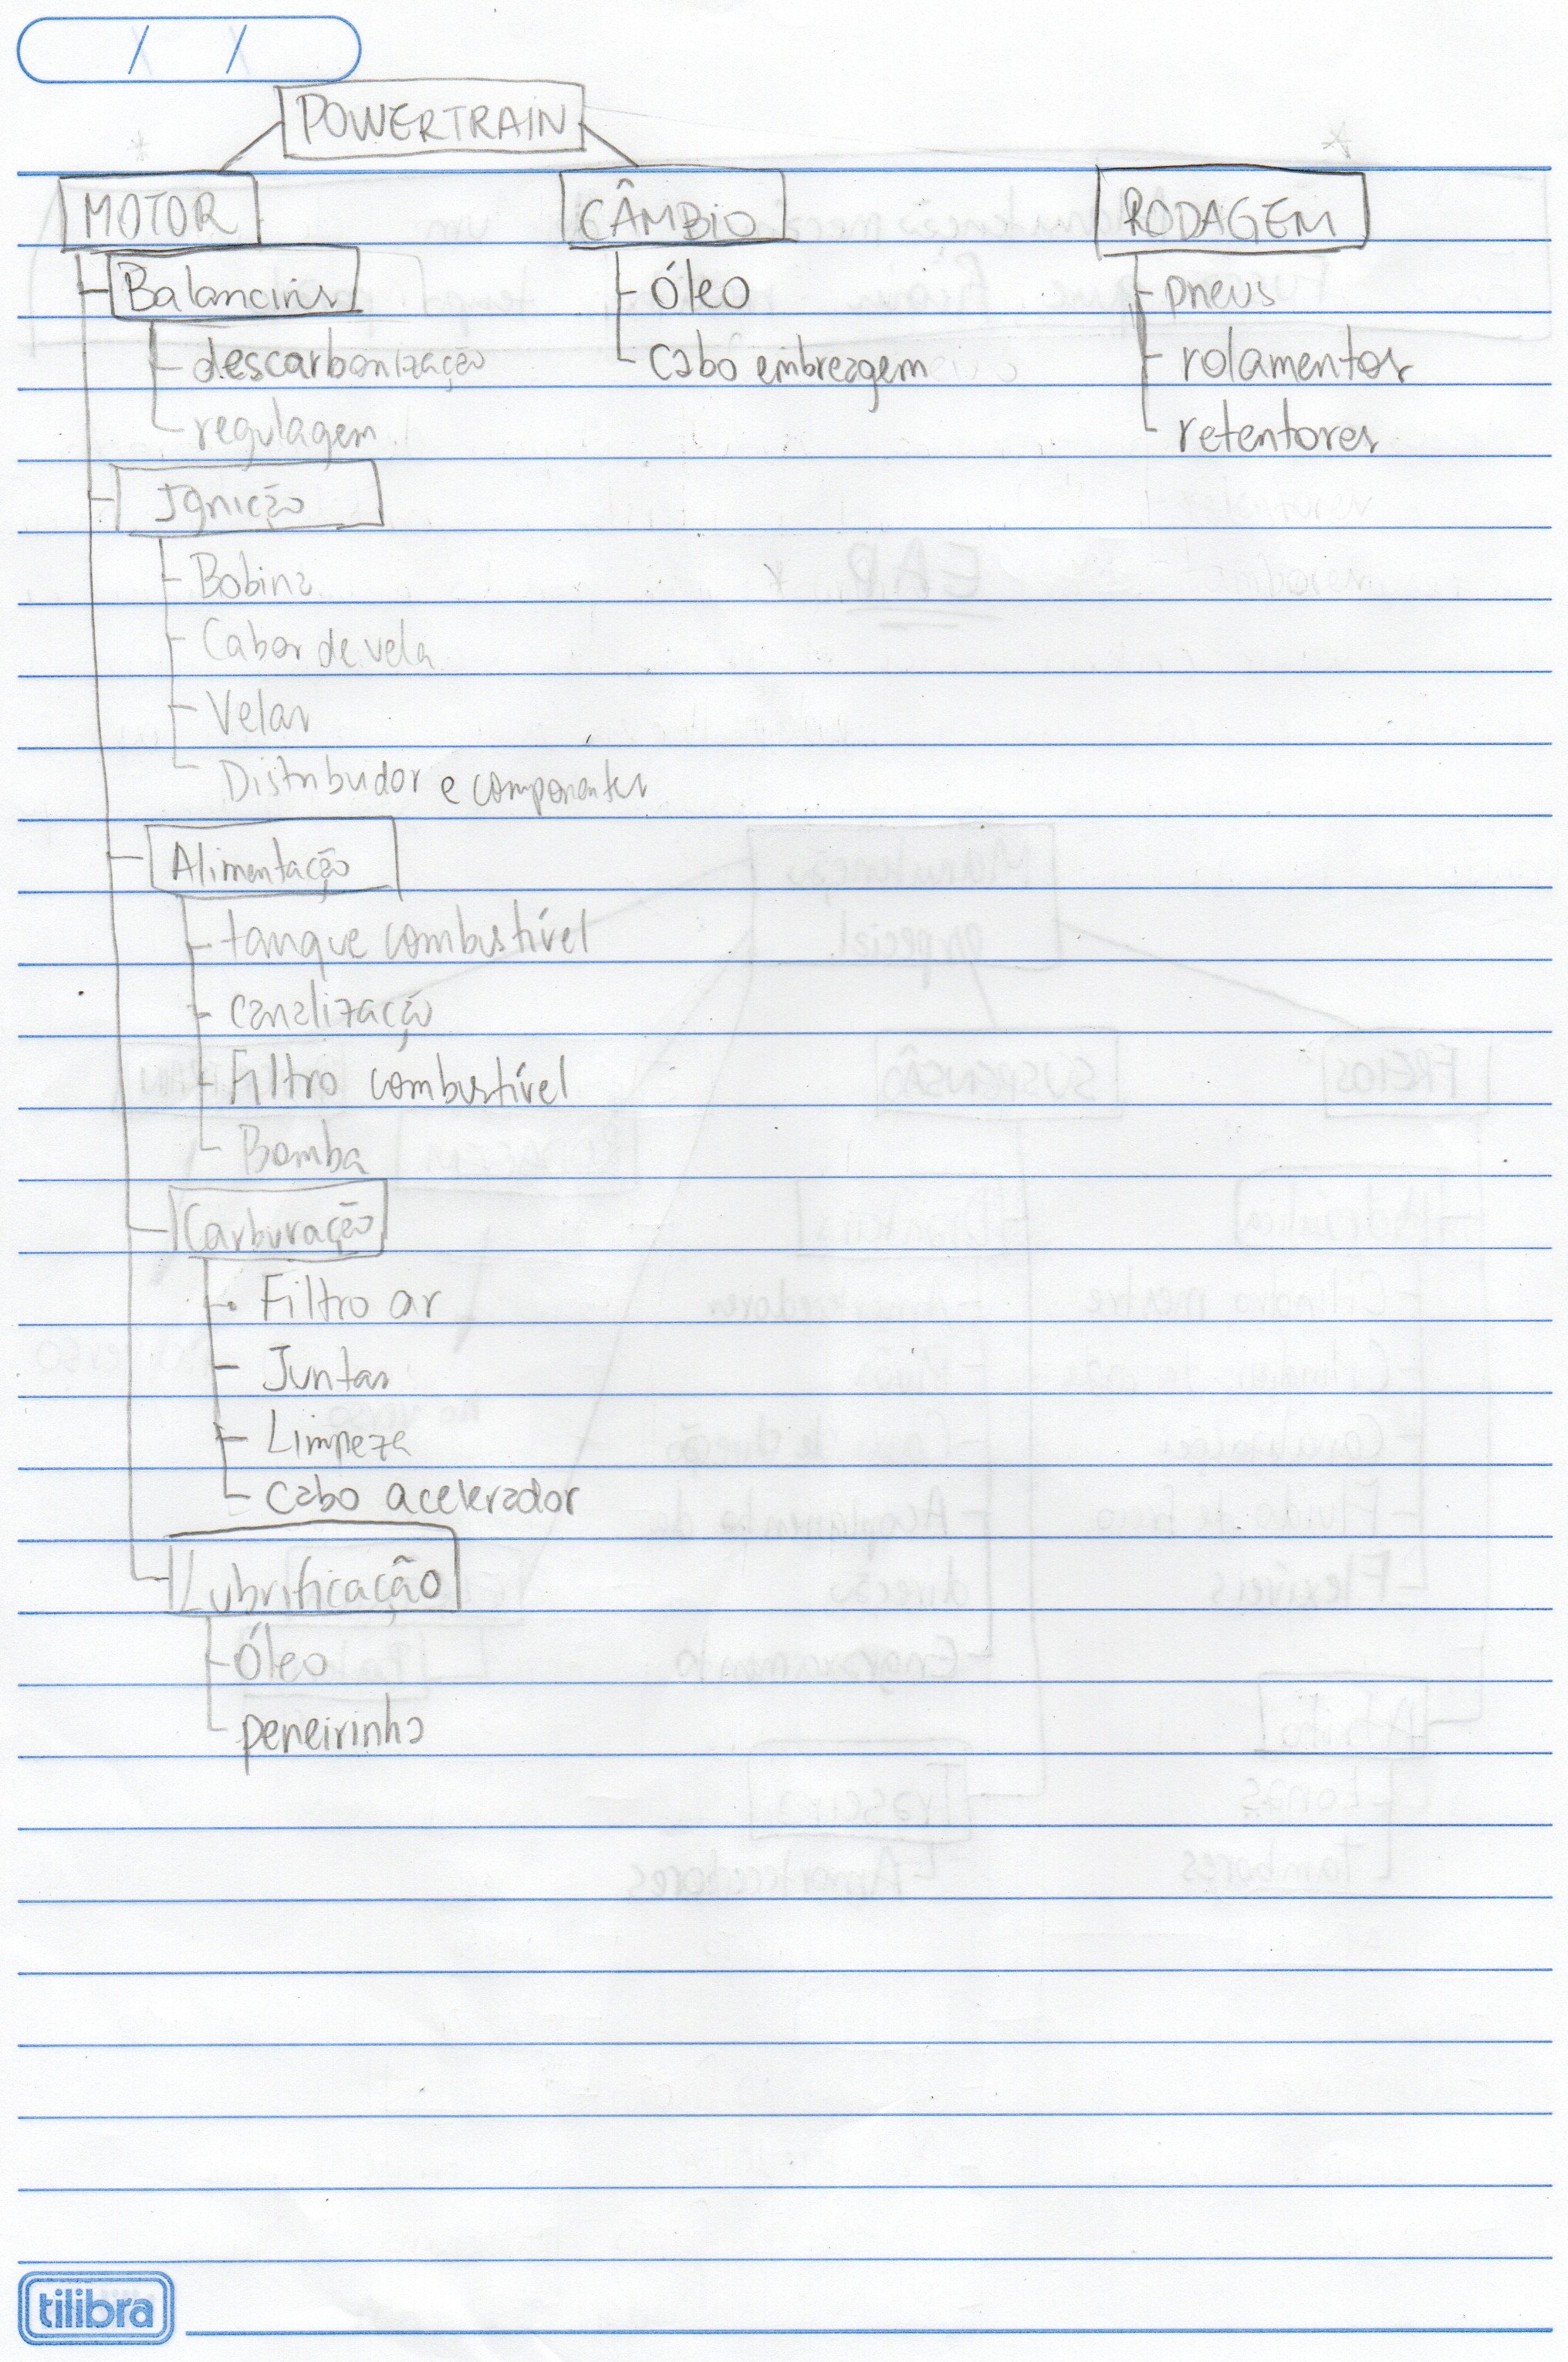 / /
POWERTRAIN
MOTOR
Balancins
descarbonização
regulagem
Ignição
Bobina
Cabos de vela
Velas
Distribudor e componentes
Alimentação
tanque combustível
canalização
Filtro combustível
Bomba
Carburação
Filtro ar
Juntas
Limpeza
cabo acelerador
Lubrificação
Óleo
peneirinha
CÂMBIO
Óleo
Cabo embreagem
RODAGEM
pneus
rolamentos
retentores
tilibra